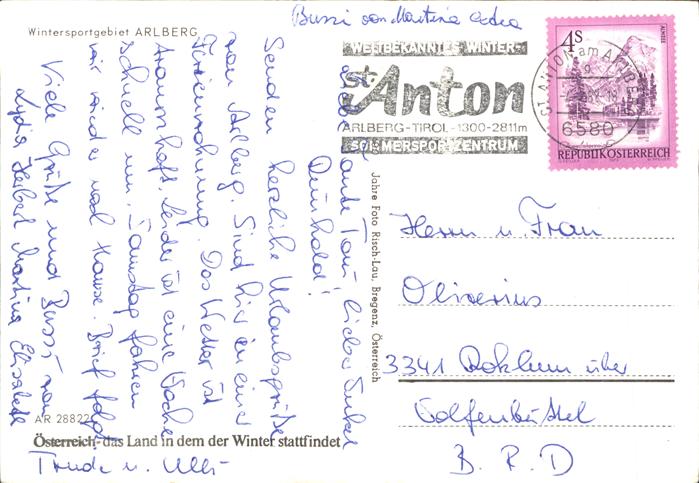 Bussi von Martina
Wintersportgebiet ARLBERG
Liebe Tante Toni, lieber Onkel
Reinhold!
Senden herzliche Urlaubsgrüße
vom Arlberg. Sind hier in einer
Ferienwohnung. Das Wetter ist
traumhaft, leider ist eine Woche
schnell um. Samstag fahren
wir wieder nach Hause. Brief folgt.
Viele Grüße und Bussi von
Lydia Herbert Martina Elisabeth
Trude u. Ulli
AR 28822
Österreich - das Land in dem der Winter stattfindet
Jahre Foto Risch-Lau, Bregenz, Österreich
WELTBEKANNTES WINTER-
St. Anton
ARLBERG-TIROL-1300-2811m
SOMMERSPORTZENTRUM
ST. ANTON am ARLBERG
6580
4S
ALMSEE
REPUBLIK ÖSTERREICH
Herrn u. Frau
Oliverius
3341 Roklum über
Wolfenbüttel
B. R. D